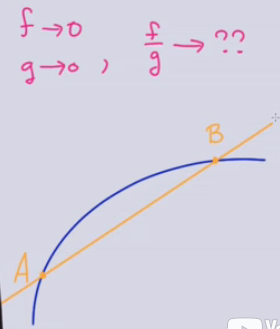 f→0
g→0 , f/g → ??
B
A